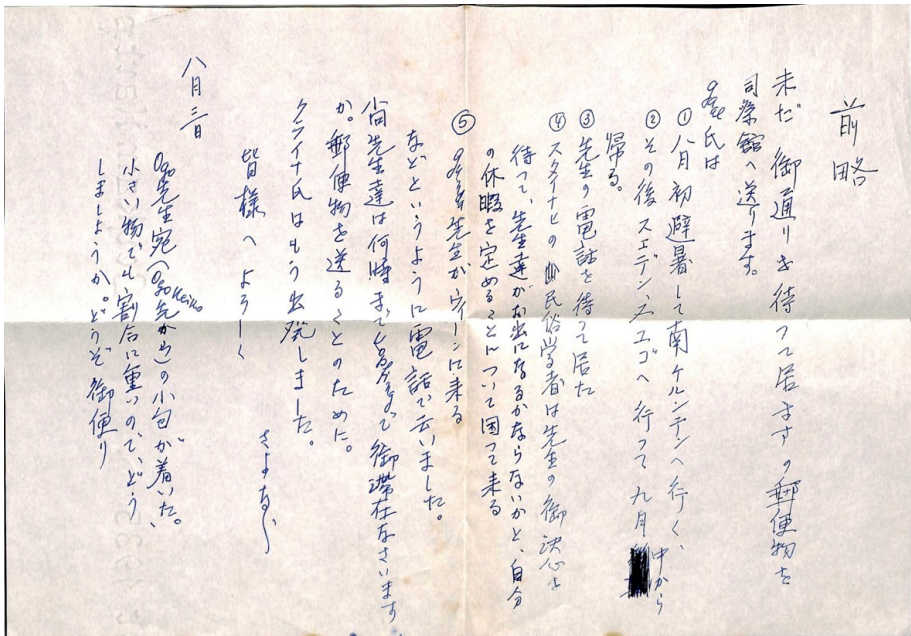 前略
未だ御通りを待って居ますの郵便物を
司祭館へ送ります。
氏は
① 八月初避暑して南ケルンテンへ行く、
② その後スエデン、ユゴへ行って九月中から
帰る。
③ 先生の電話を待って居た
④ スタイナとの民俗学者は先生の御決心を
待って、先生達がお出になるかならないかと、自分
の休暇を定めることについて困って来る
⑤ 先生がウィーンに来る
などというように電話で云いました。
尚先生達は何時まで御滞在なさいます
か。郵便物を送ることのために。
クライナ氏はもう出発しました。
皆様へよろしく
さよなら
八月三日
先生宛(Keiko先から)の小包が着いた。
小さい物でも割合に重いので、どう
しましようか。どうぞ御便り